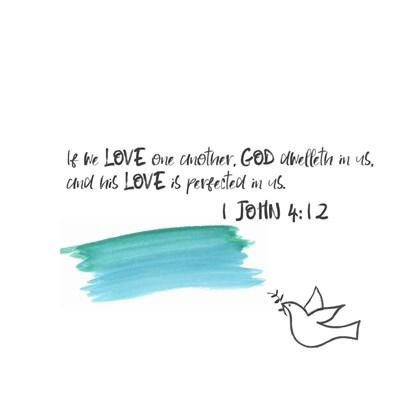 If we LOVE one another, GOD dwelleth in us,
and his LOVE is perfected in us.
1 JOHN 4:12